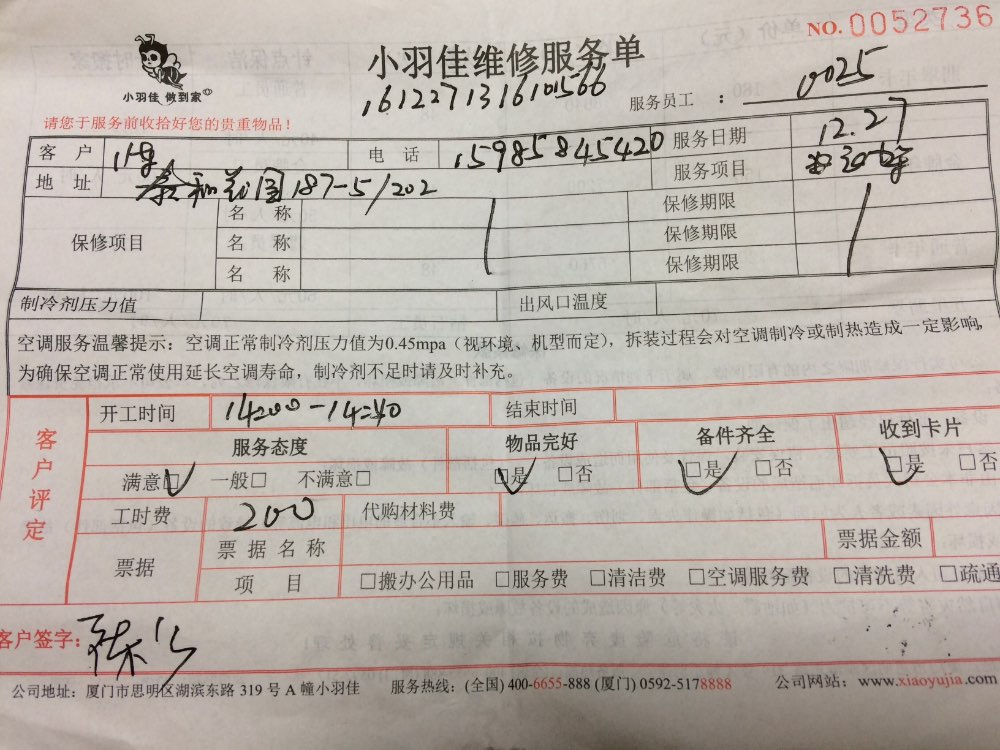 NO. 0052736
小羽佳维修服务单
小羽佳 做到家
161227131610156600
服务员工 : 0025
请您于服务前收拾好您的贵重物品!
客 户 电 话 15985845420 服务日期 12.27
地 址 泰和花园187-5/202 服务项目
保修项目 名 称 保修期限
名 称 保修期限
名 称 保修期限
制冷剂压力值 出风口温度
空调服务温馨提示:空调正常制冷剂压力值为0.45mpa(视环境、机型而定),拆装过程会对空调制冷或制热造成一定影响,
为确保空调正常使用延长空调寿命,制冷剂不足时请及时补充。
客户评定
开工时间 14:00-14:40 结束时间
服务态度 物品完好 备件齐全 收到卡片
满意□ 一般□ 不满意□ □是 □否 □是 □否 □是 □否
工时费 200 代购材料费
票据 票据名称 票据金额
项 目 □搬办公用品 □服务费 □清洁费 □空调服务费 □清洗费 □疏通
客户签字:
公司地址:厦门市思明区湖滨东路 319 号 A 幢小羽佳 服务热线:(全国) 400-6655-888 (厦门) 0592-5178888 公司网站:www.xiaoyujia.com